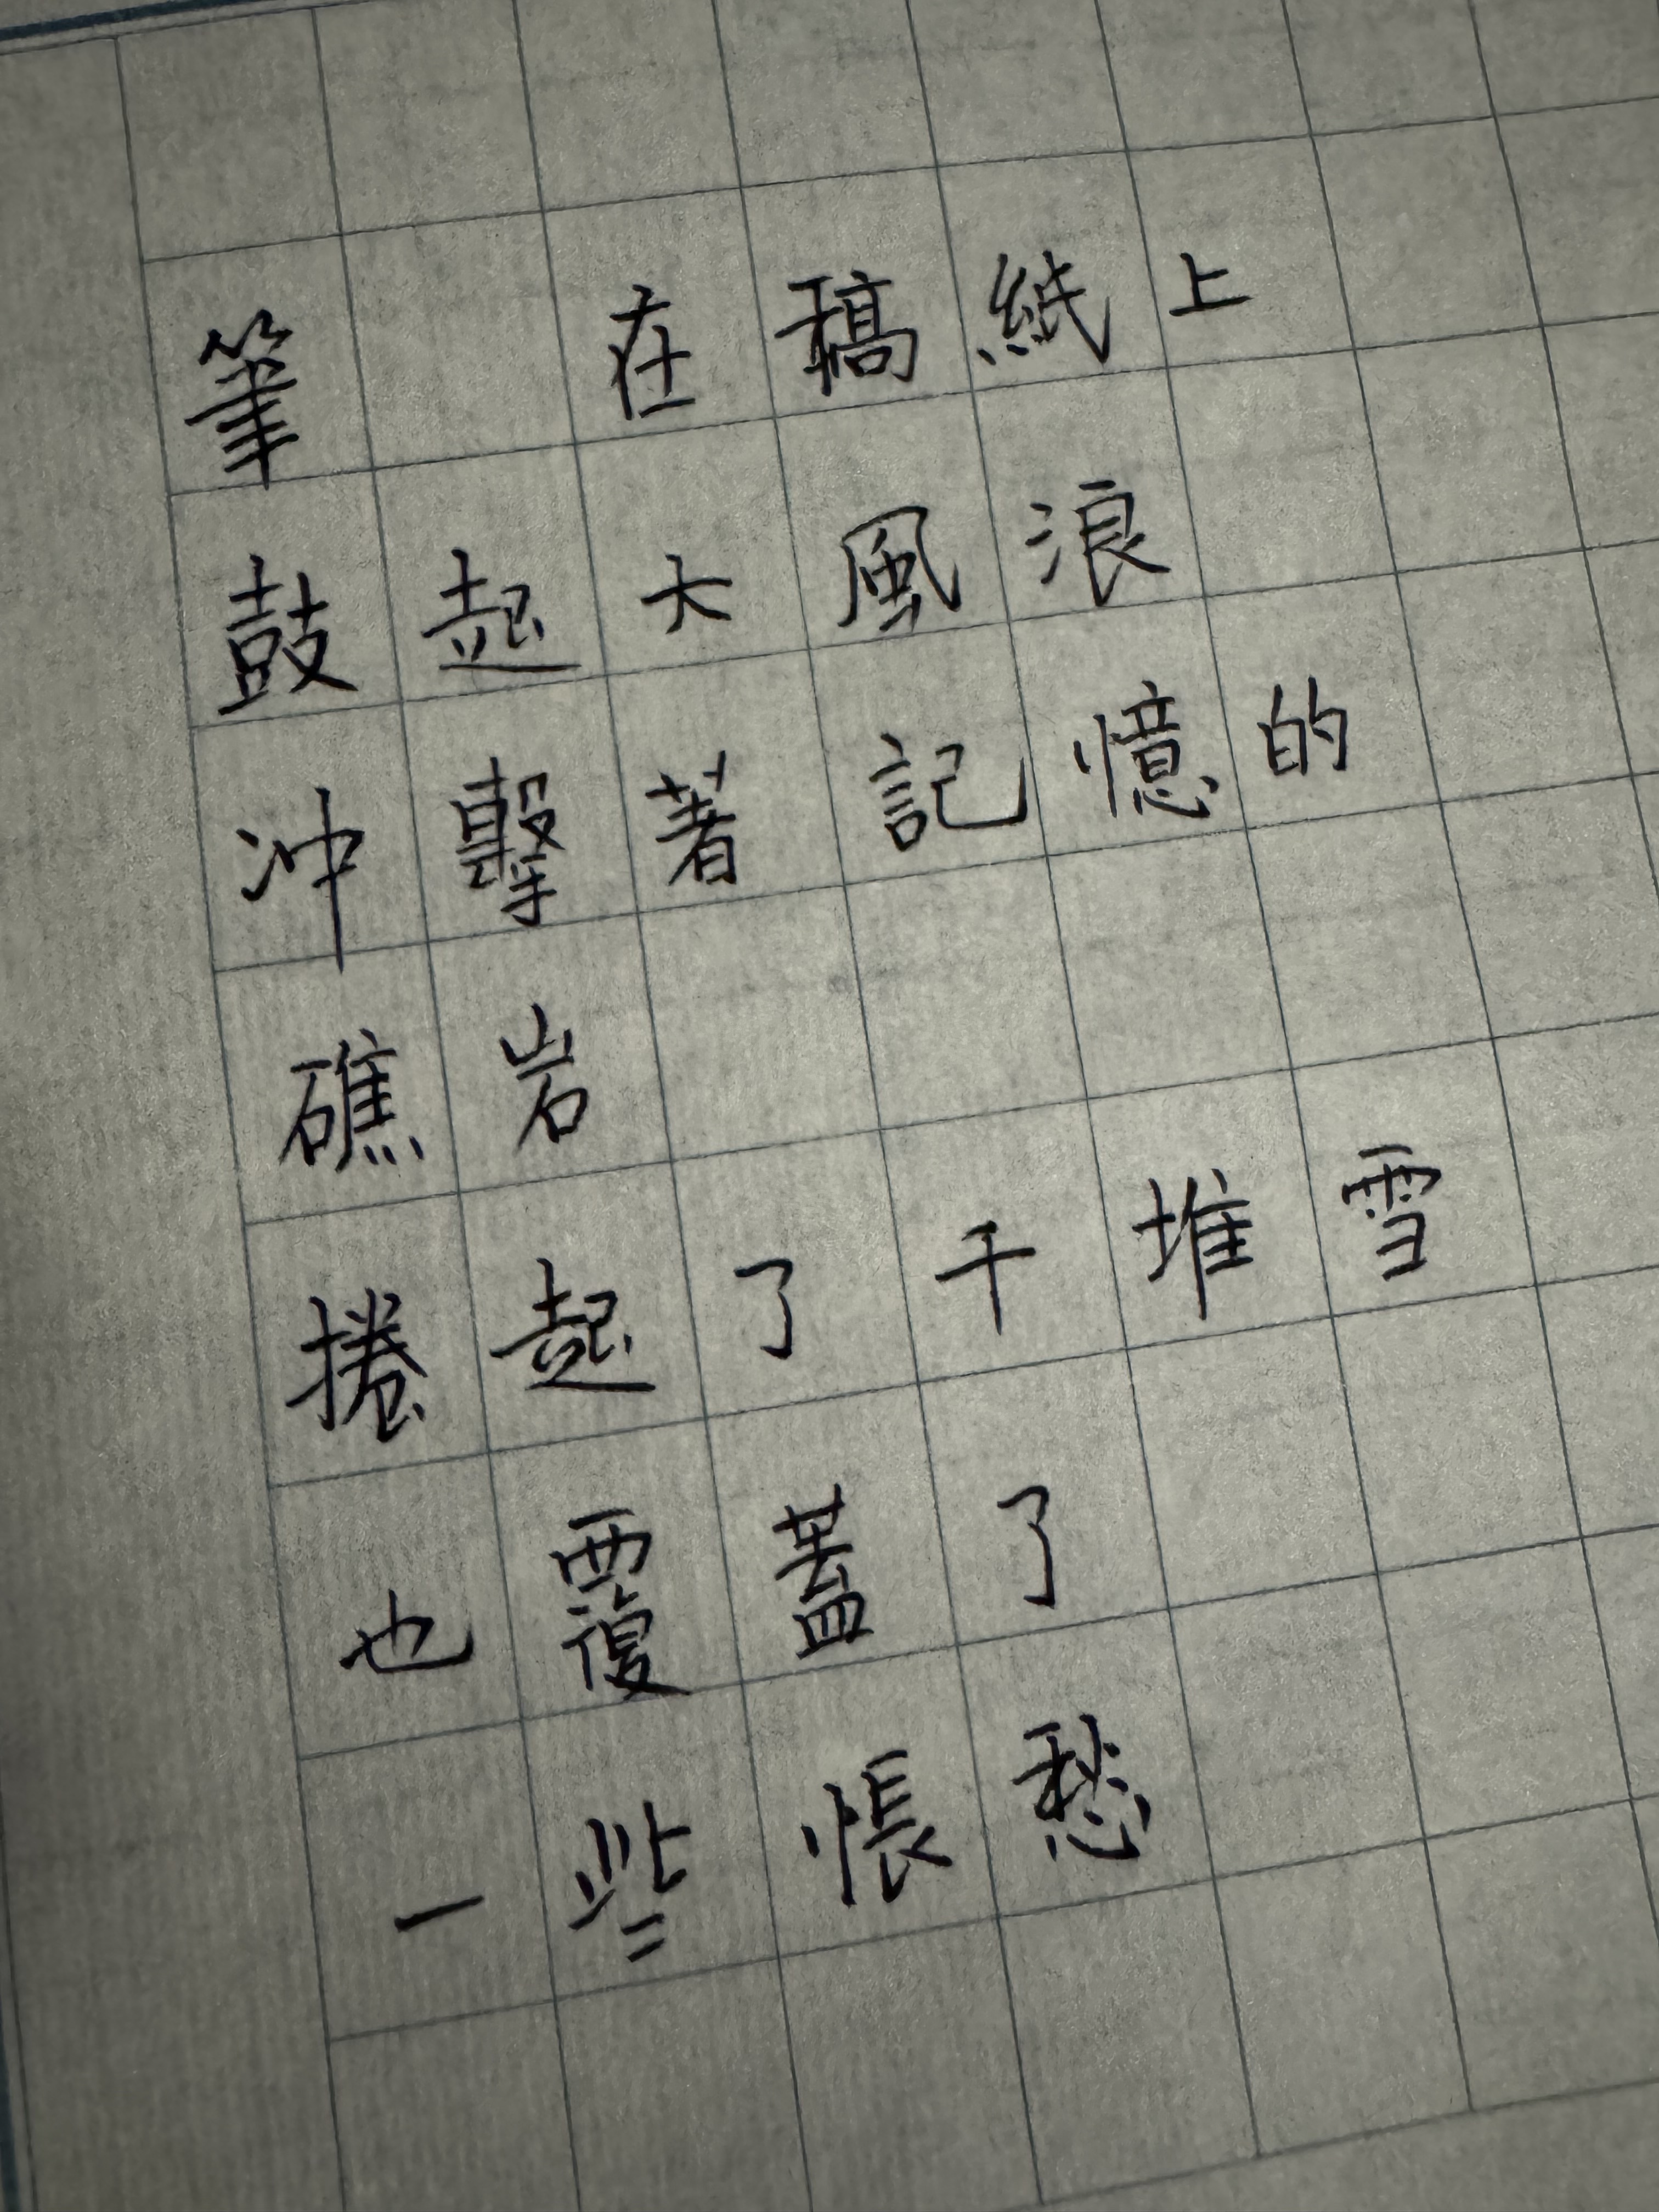 筆　在稿紙上
鼓起大風浪
冲擊著記憶的
礁岩
捲起了千堆雪
也覆蓋了
一些悵愁